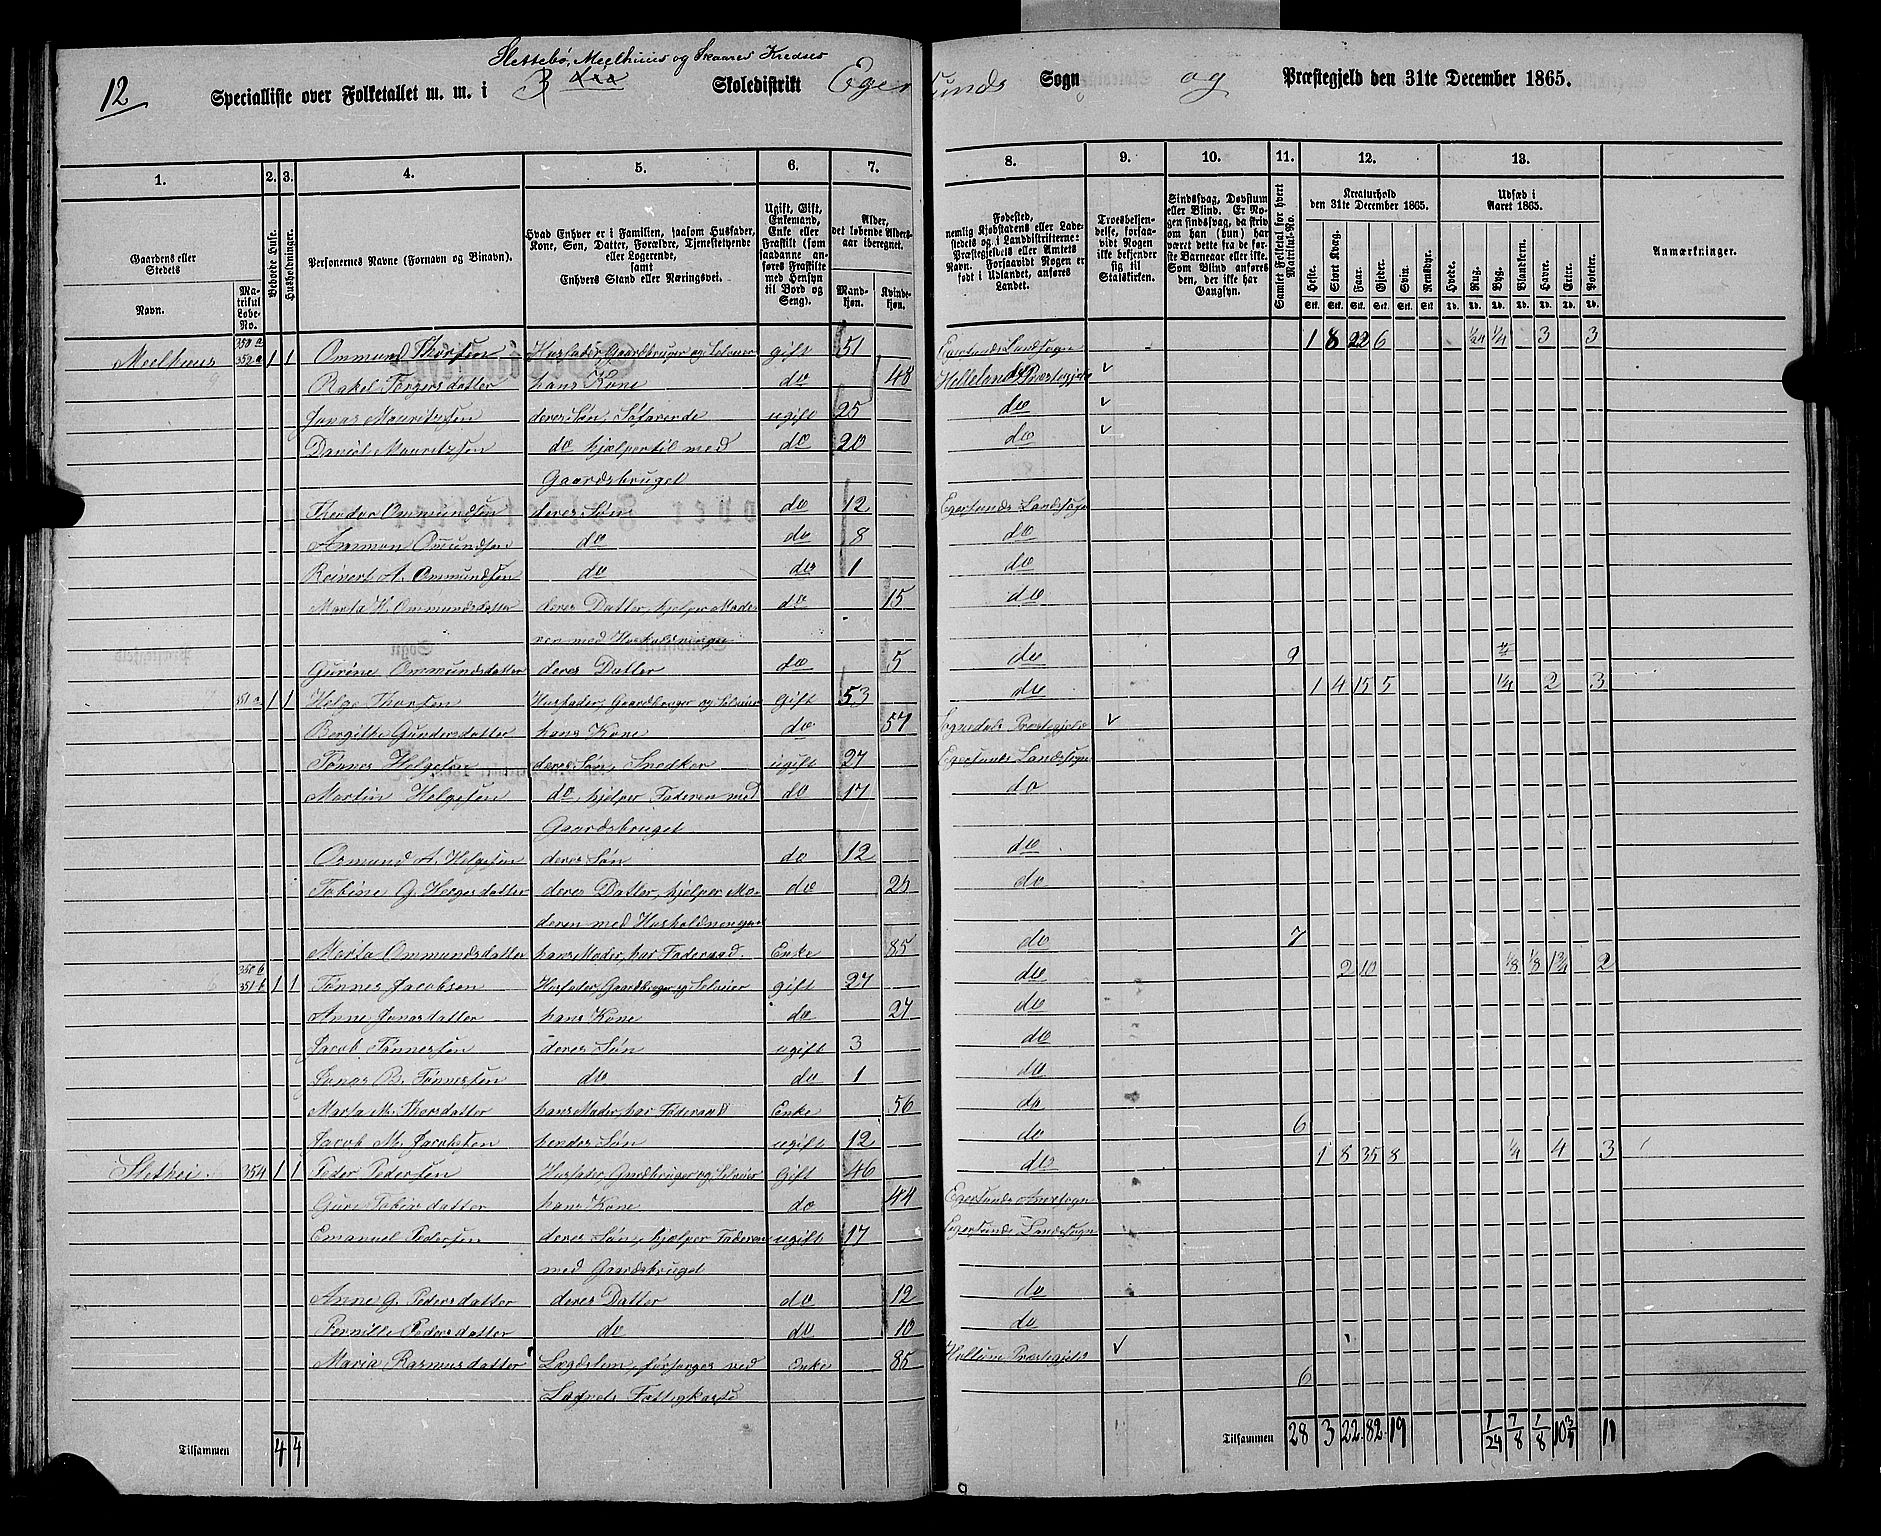 12
Slettebø, Meelhuus og Skaarer Kredser
Specialliste over Folketallet m. m. i 3 die Skoledistrikt Egersunds Sogn og Præstegjeld den 31te December 1865.
1. 2. 3. 4. 5. 6. 7. 8. 9. 10. 11. 12. 13.
Gaardens eller Stedets
Navn.
Matrikul Løbe-No.
Beboede Huse.
Husholdninger.
Personernes Navne (Fornavn og Binavn).
Hvad Enhver er i Familien, saasom Husfader, Kone, Søn, Datter, Forældre, Tjenestetyende eller Logerende, samt Enhvers Stand eller Næringsvei.
Ugift, Gift, Enkemand, Enke eller Fraskilt (som saadanne anføres Fraskilte med Hensyn til Bord og Seng).
Alder, det løbende Aldersaar iberegnet.
Mandkøn. Kvindekøn.
Fødested, nemlig Kjøbstadens eller Ladestedets og i Landdistrikterne: Præstegjeldets eller Amtets Navn. Forsaavidt Nogen er født i Udlandet, anføres Landet.
Troesbekjendelse, forsaavidt Nogen ikke bekjender sig til Statskirken.
Sindssvag, Døvstum eller Blind. Er Nogen sindssvag, da skriv om han (hun) har været dette fra de første Barneaar eller ikke. Som Blind anføres den, der ikke har Gangsyn.
Samlet Folketal for hvert Matrikul-No.
Kreaturhold den 31te December 1865.
Heste. Stort Kvæg. Faar. Gjeder. Svin. Rensdyr.
Udsæd i Aaret 1865.
Hvede. Rug. Byg. Blandkorn. Havre. Erter. Poteter.
Anmærkninger.
Meelhuus 350 a 352 a 1 1 Ommund Thorsen Husfader, Gaardbruger og Selveier gift 51 Egersunds Landsogn 1 8 22 6 1/24 1/4 3 3
Rakel Torgersdatter hans Kone do 48 Hellelands Præstegjeld
Jonas Mauritzsen deres Søn, Søfarende ugift 25 do
Daniel Mauritzsen do hjælper til med do 20 do
Gaardsbruget
Theodor Ommundsen deres Søn do 12 Egersunds Landsogn
Ammon Omundsen do do 8 do
Reinert A. Ommundsen do do 1 do
Marta H. Ommundsdatter deres Datter, hjelper Mode- do 15 do
ren med Husholdningen
Gurine Ommundsdatter deres Datter do 5 do 9
351 a 1 1 Helge Thorsen Husfader, Gaardbruger og Selveier gift 53 do 1 4 15 5 1/4 2 3
Bergithe Gundersdatter hans Kone do 57 Sognedals Præstegjeld
Tønnes Helgesen deres Søn, Snedker ugift 27 Egersunds Landsogn
Martin Helgesen do, hjelper Faderen med do 17 do
Gaardsbruget
Osmund A. Helgesen deres Søn do 12 do
Tobine G. Helgesdatter deres Datter, hjelper Mo- do 25 do
deren med Husholdningen
Marta Ommundsdatter hans Moder, har Føderaad. Enke 85 do 7
350 b 351 b 1 1 Tønnes Jacobsen Husfader, Gaardbruger og Selveier gift 27 do 2 10 1/8 1/8 1 3/4 2
Anne Jonasdatter hans Kone do 27 do
Jacob Tønnessen deres Søn ugift 3 do
Jonas B. Tønnesen do do 1 do
Marta M. Thorsdatter hans Moder, har Føderaad Enke 56 do
Jacob M. Jacobsen hendes Søn ugift 12 do 6
Slethei 354 1 1 Peder Pedersen Husfader, Gaardbruger og Selveier gift 46 do 1 8 35 8 1/4 4 3
Guri Tobiasdatter hans Kone do 44 Egersunds Anexsogn
Emanuel Pedersen deres Søn, hjælper Faderen ugift 17 Egersunds Landsogn
med Gaardsbruget
Anne G. Pedersdatter deres Datter do 12 do
Pernille Pedersdatter do do 10 do
Maria Rasmusdatter Lægdslem, forsørges ved Enke 85 Præstegjeld
Sognets Fattigkasse 6
Tilsammen 4 4 Tilsammen 28 3 22 82 19 1/24 7/8 1/8 10 3/4 11